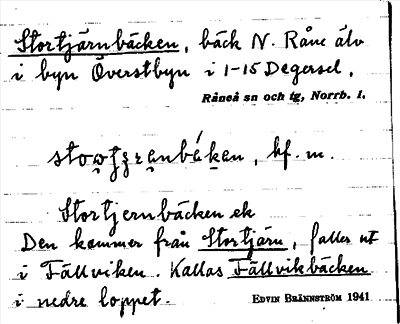 Stortjärnbäcken, bäck N. Råne älv
i byn Överstbyn i 1-15 Degersel.
Råneå sn och tg, Norrb. l.
kf. m.
Stortjernbäcken ek
Den kommer från Stortjärn, faller ut
i Fällviken. Kallas Fällvikbäcken
i nedre loppet.
EDVIN BRÄNNSTRÖM 1941